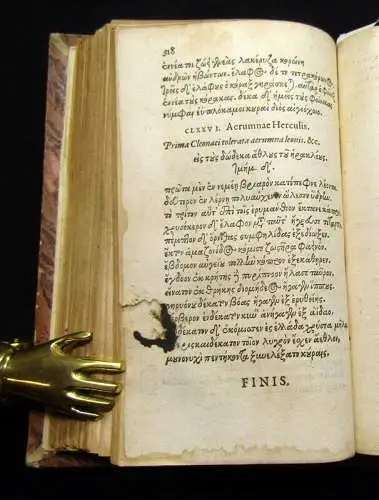 318
ἐννέα τοι ζώει γενεὰς λακέρυζα κορώνη
ἀνδρῶν ἡβώντων· ἔλαφος δέ τε τετρακόρωνος.
τρεῖς δ' ἐλάφους ὁ κόραξ γηράσκεται·
ἐννέα τοὺς κόρακας. δέκα δ' ἡμεῖς τοὺς φοίνικας
νύμφαι ἐϋπλόκαμοι κοῦραι διὸς αἰγιόχοιο.
CLXXVI. Aerumnae Herculis.
Prima Cleonaei tolerata aerumna leonis. &c.
εἰς τοὺς δώδεκα ἄθλους τοῦ ἡρακλέους.
πρῶτα μὲν ἐν νεμέῃ βριαρὸν κατέπεφνε λέοντα.
δεύτερον ἐν λέρνῃ πολυαύχενον ὤλεσεν ὕδραν.
τὸ τρίτον αὖτ' ἐπὶ τοῖς ἐρυμάνθιον ἔκτανε κάπρον.
χρυσόκερων ἔλαφον μετὰ ταῦτ' ἤγρευσε τέταρτον.
πέμπτον δ' ὄρνιθας στυμφηλίδας ἐξεδίωξεν.
ἕκτον ἀμαζονίδος κόμισε ζωστῆρα φαεινόν.
ἕβδομον αὐγείου πολλὴν κόπρον ἐξεκάθηρεν.
ὄγδοον ἐκ κρήτηθε πυρίπνοον ἤλασε ταῦρον.
εἴνατον ἐκ θρῄκης διομήδεος ἤγαγεν ἵππους.
γηρυόνου δέκατον βόας ἤγαγεν ἐξ ἐρυθείης.
κέρβερον ἑνδέκατον κύν' ἀνήγαγεν ἐξ ἀΐδαο.
δωδέκατον δ' ἐκόμισσεν ἐς ἑλλάδα χρύσεα μῆλα.
τρισκαιδέκατον τοῖον λυγρὸν ἔσχεν ἄεθλον.
μουνονυχὶ πεντήκοντα ξυνελέξατο κούραις.
FINIS.